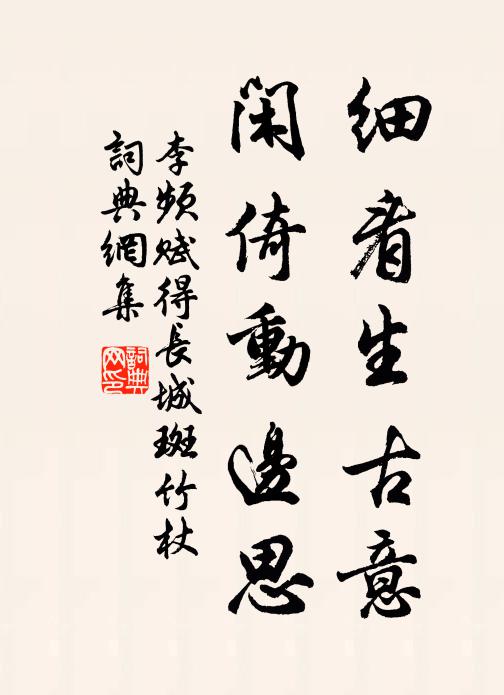 细看生古意
闲倚動邊思
李频赋得長城斑竹杖
詞典網集
詞典
网印